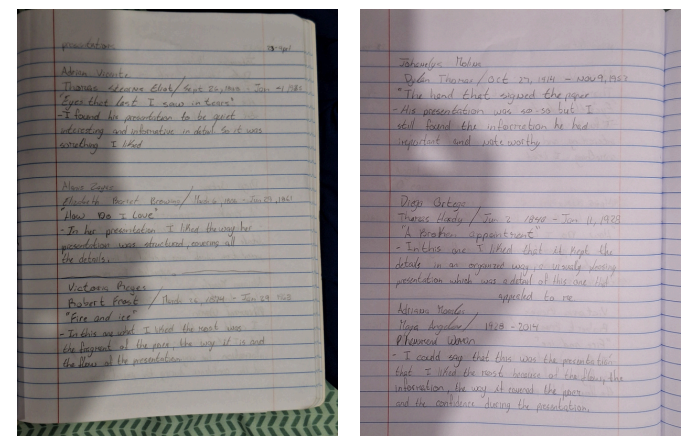 presentation
Adrian Vicente
Thomas Stearns Eliot / Sept 26, 1888 - Jan 4 1965
"Eyes that last I saw in tears"
- I found his presentation to be quiet
interesting and informative in detail so it was
something I liked
Elizabeth Barret Browning / March 6, 1806 - Jun 29, 1861
"How Do I Love"
- In her presentation I liked the way her
presentation was structured, covering all
the details.
Victoria Reyes
Robert Frost / March 26, 1874 - Jan 29 1963
"Fire and ice"
- In this one what I liked the most was
the fragment of the poem, the way it is and
the flow of the presentation
Dylan Thomas / Oct 27, 1914 - Nov 9, 1953
"The hand that signed the paper
- His presentation was so-so but I
still found the information he had
important and note worthy
Diego Ortega
Thomas Hardy / Jun 2 1840 - Jan 11, 1928
"A Broken appointment"
- In this one I liked that it kept the
details in an organized way, a visualy pleasing
presentation which was a detail of this one that
appealed to me
Maya Angelou / 1928 - 2014
Phenomenal Woman
- I could say that this was the presentation
that I liked the most because of the flow, the
information, the way it covered the poem
and the confidence during the presentation.